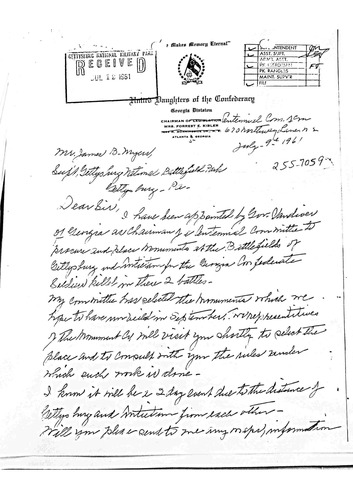 Makes Memory Eternal"
GETTYSBURG NATIONAL MILITARY PARK
RECEIVED
JUL 12 1961
ASST. SUPT.
ADM'S. ASST.
PK. HISTORIAN
PK. RANGERS
MAINT. SUPV'R
FILE
United Daughters of the Confederacy
Georgia Division
CHAIRMAN OF LEGISLATION
MRS. FORREST E. KIBLER
ATLANTA 6, GEORGIA
Centennial Com.
July - 9th 1961
255-7059
Mr. James B. Myers,
Supt. Gettysburg National Battlefield Park
Gettysburg - Pa -
Dear Sir,
I have been appointed by Gov. Vandiver
of Georgia as Chairman of a Centennial Committee to
procure and place Monuments at the Battlefields of
Gettysburg and Antietam for the Georgia Confederate
Soldiers killed in these 2 battles -
My committee has selected the Monuments which we
hope to have unveiled in September. representatives
of the Monument Co. will visit you shortly to select the
place and to consult with you the rules under
which such work is done -
I know it will be a 2 day event due to the distance of
Gettysburg and Antietam from each other -
Will you please send to me any maps, information